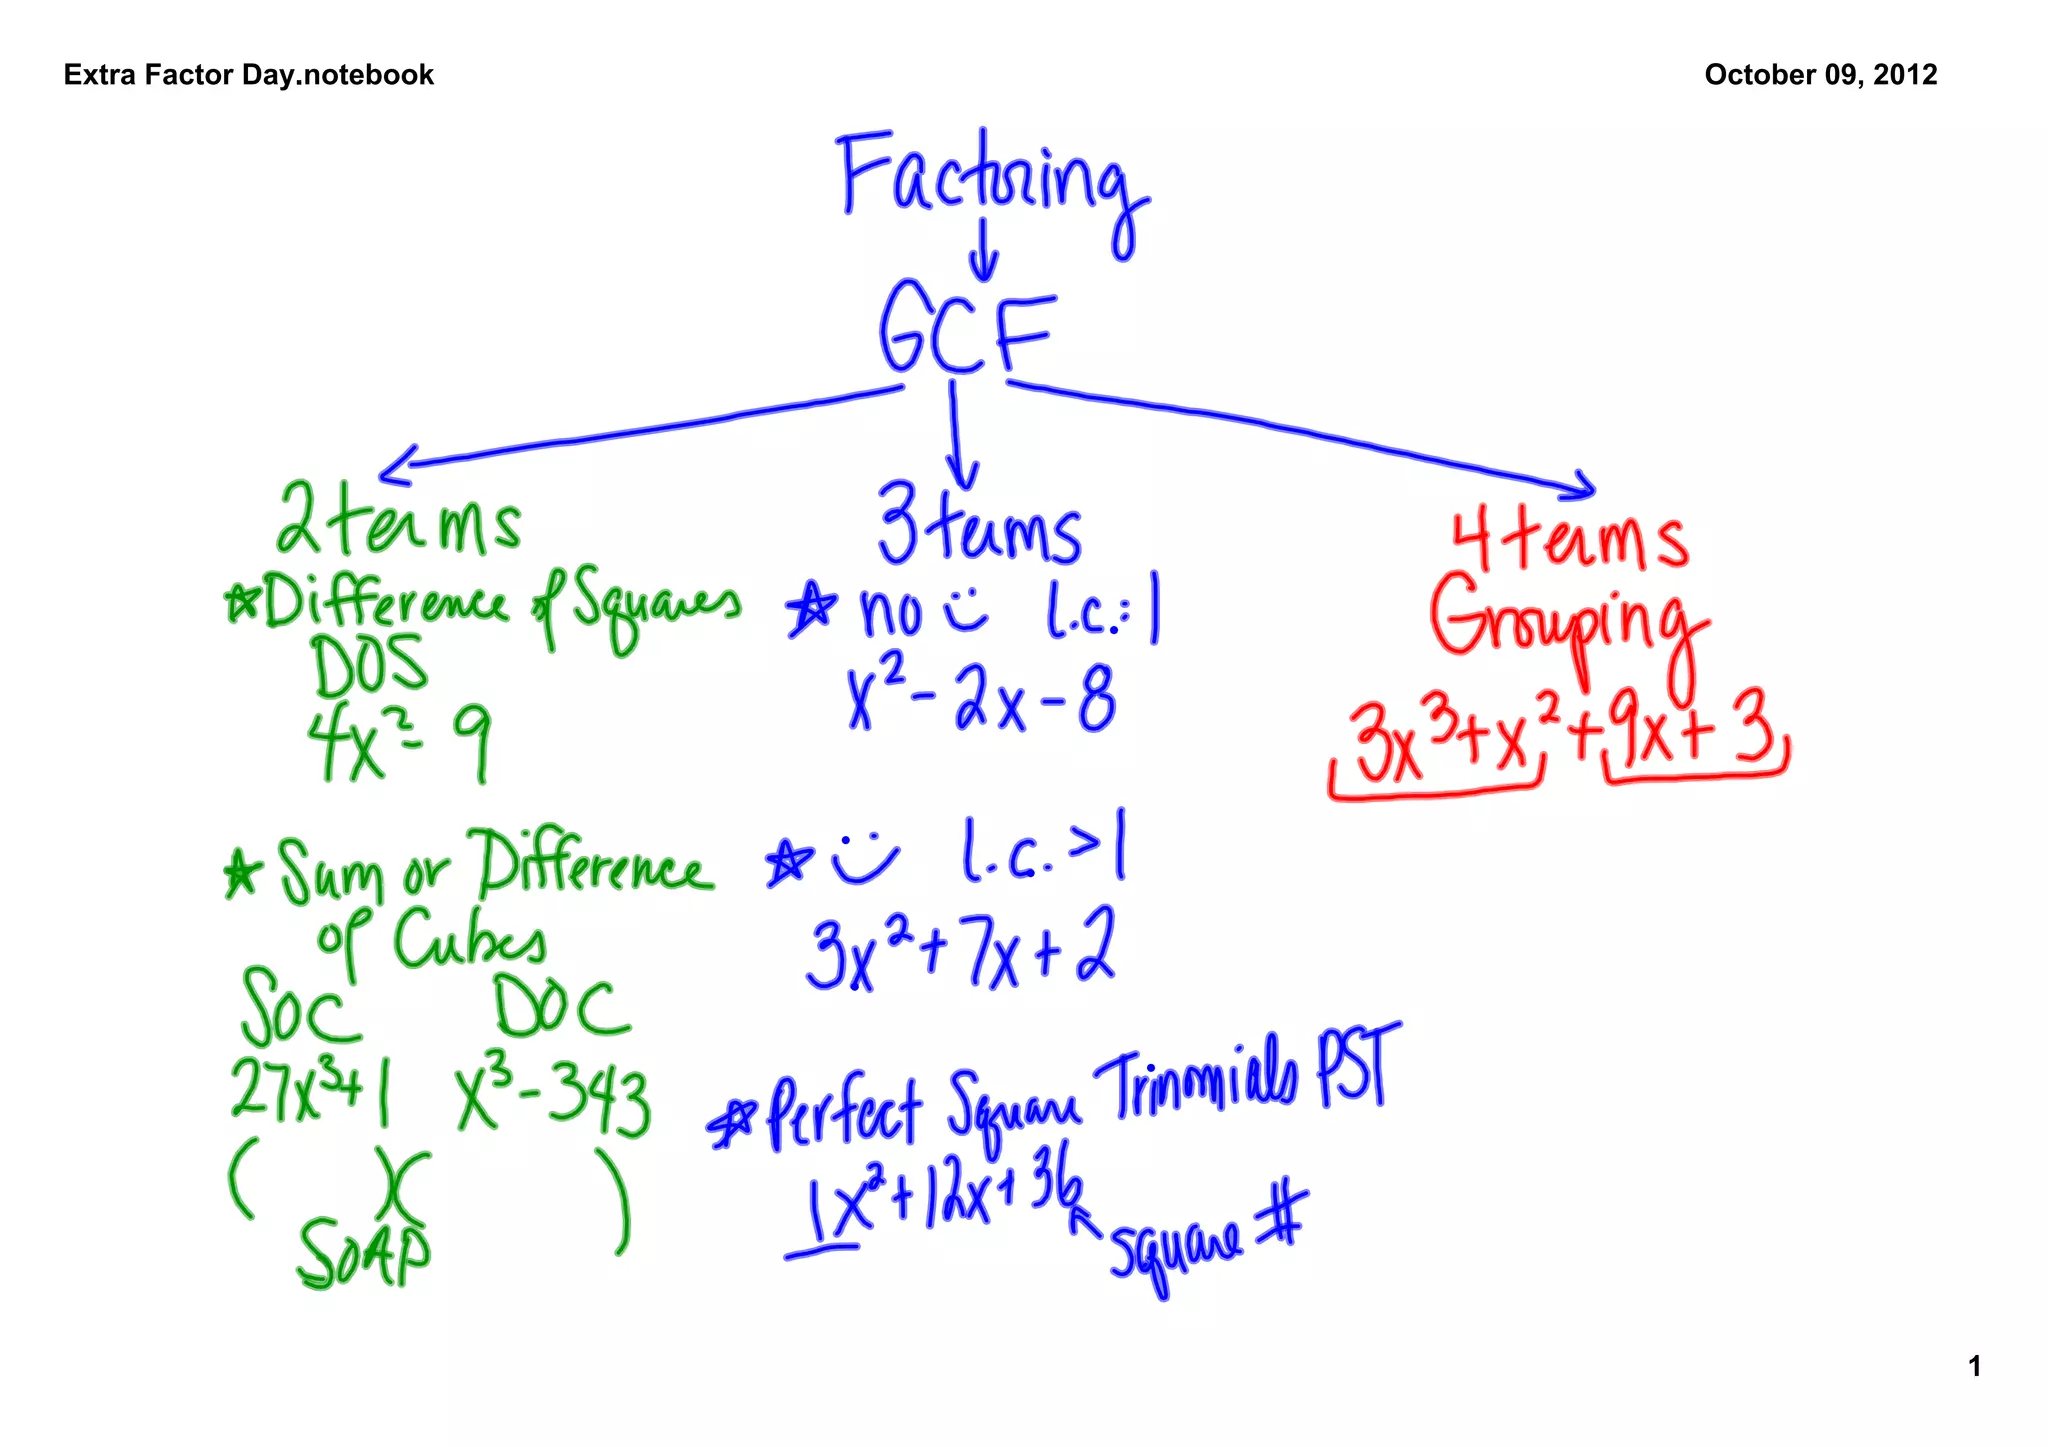 Extra Factor Day.notebook
October 09, 2012
Factoring
GCF
2 terms
★Difference of Squares
DOS
4x² - 9
★ Sum or Difference
of Cubes
SOC DOC
27x³+1 x³-343
( )( )
SOAP
3 terms
★ no ☺ l.c.=1
x² - 2x - 8
★ ☺ l.c. > 1
3x² + 7x + 2
★Perfect Square Trinomials PST
1x² + 12x + 36
square #
4 terms
Grouping
3x³ + x² + 9x + 3
1